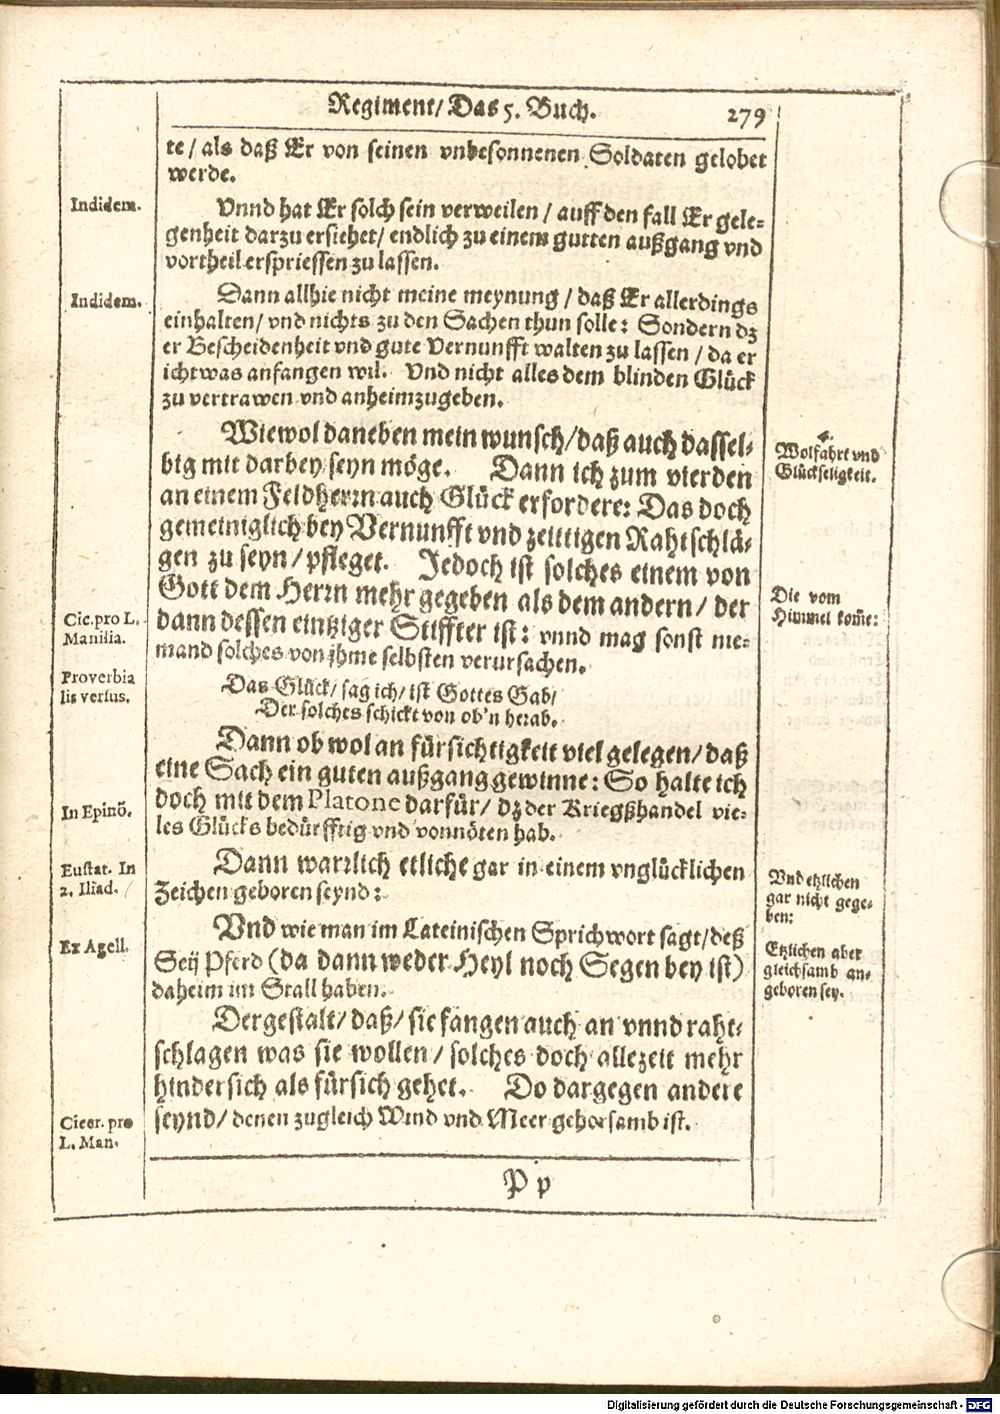 Regiment/ Das 5. Buch. 279
te/ als daß Er von seinen vnbesonnenen Soldaten gelobet
werde.
Indidem.
Vnnd hat Er solch sein verweilen/ auff den fall Er gele-
genheit darzu ersiehet/ endlich zu einem gutten außgang vnd
vortheil erspriessen zu lassen.
Indidem.
Dann allhie nicht meine meynung/ daß Er allerdings
einhalten/ vnd nichts zu den Sachen thun solle: Sondern dz
er Bescheidenheit vnd gute Vernunfft walten zu lassen/ da er
ichtwas anfangen wil. Vnd nicht alles dem blinden Glück
zu vertrawen vnd anheimzugeben.
Wiewol daneben mein wunsch/ daß auch dassel-
big mit darbey seyn möge. Dann ich zum vierden
an einem Feldherrn auch Glück erfordere: Das doch
gemeiniglich bey Vernunfft vnd zeittigen Rahtschlä-
gen zu seyn/ pfleget. Jedoch ist solches einem von
Gott dem Herrn mehr gegeben als dem andern/ der
dann dessen eintziger Stiffter ist: vnnd mag sonst nie-
mand solches von jhme selbsten verursachen.
4.
Wolfahrt vnd
Glückseligkeit.
Die vom
Himmel kom̃e:
Cic. pro L.
Manilia.
Proverbia
lis versus.
Das Glück/ sag ich/ ist Gottes Gab/
Der solches schickt von ob'n herab.
Dann ob wol an fürsichtigkeit viel gelegen/ daß
eine Sach ein guten außgang gewinne: So halte ich
doch mit dem Platone darfür/ dz der Kriegßhandel vie-
les Glücks bedürfftig vnd vonnöten hab.
In Epinō.
Dann warrlich etliche gar in einem vnglücklichen
Zeichen geboren seynd:
Eustat. In
2. Iliad.
Vnd etzlichen
gar nicht gege-
ben:
Vnd wie man im Lateinischen Sprichwort sagt/ deß
Seij Pferd (da dann weder Heyl noch Segen bey ist)
daheim im Stall haben.
Ex Agell.
Etzlichen aber
gleichsamb an-
geboren sey.
Dergestalt/ daß/ sie fangen auch an vnnd raht-
schlagen was sie wollen/ solches doch allezeit mehr
hindersich als fürsich gehet. Do dargegen andere
seynd/ denen zugleich Wind vnd Meer gehorsamb ist.
Cicer. pro
L. Man.
P p
Digitalisierung gefördert durch die Deutsche Forschungsgemeinschaft - DFG